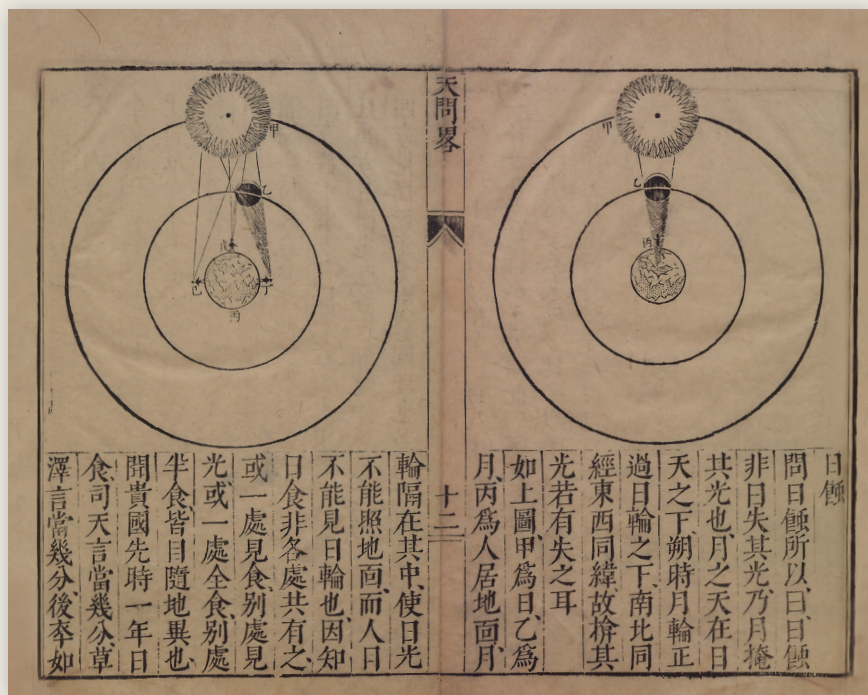 日蝕
問日蝕所以曰日蝕
非日失其光乃月掩
其光也月之天在日
天之下朔時月輪正
過日輪之下南北同
經東西同緯故揜其
光若有失之耳
如上圖甲爲日乙爲
月丙爲人居地面月
甲
乙
丙
天問畧
十二
輪隔在其中使日光
不能照地面而人目
不能見日輪也因知
日食非各處共有之
或一處見食別處見
光或一處全食別處
半食皆目隨地異也
聞貴國先時一年日
食司天言當幾分草
澤言當幾分後卒如
甲
乙
戊
己
丁
丙